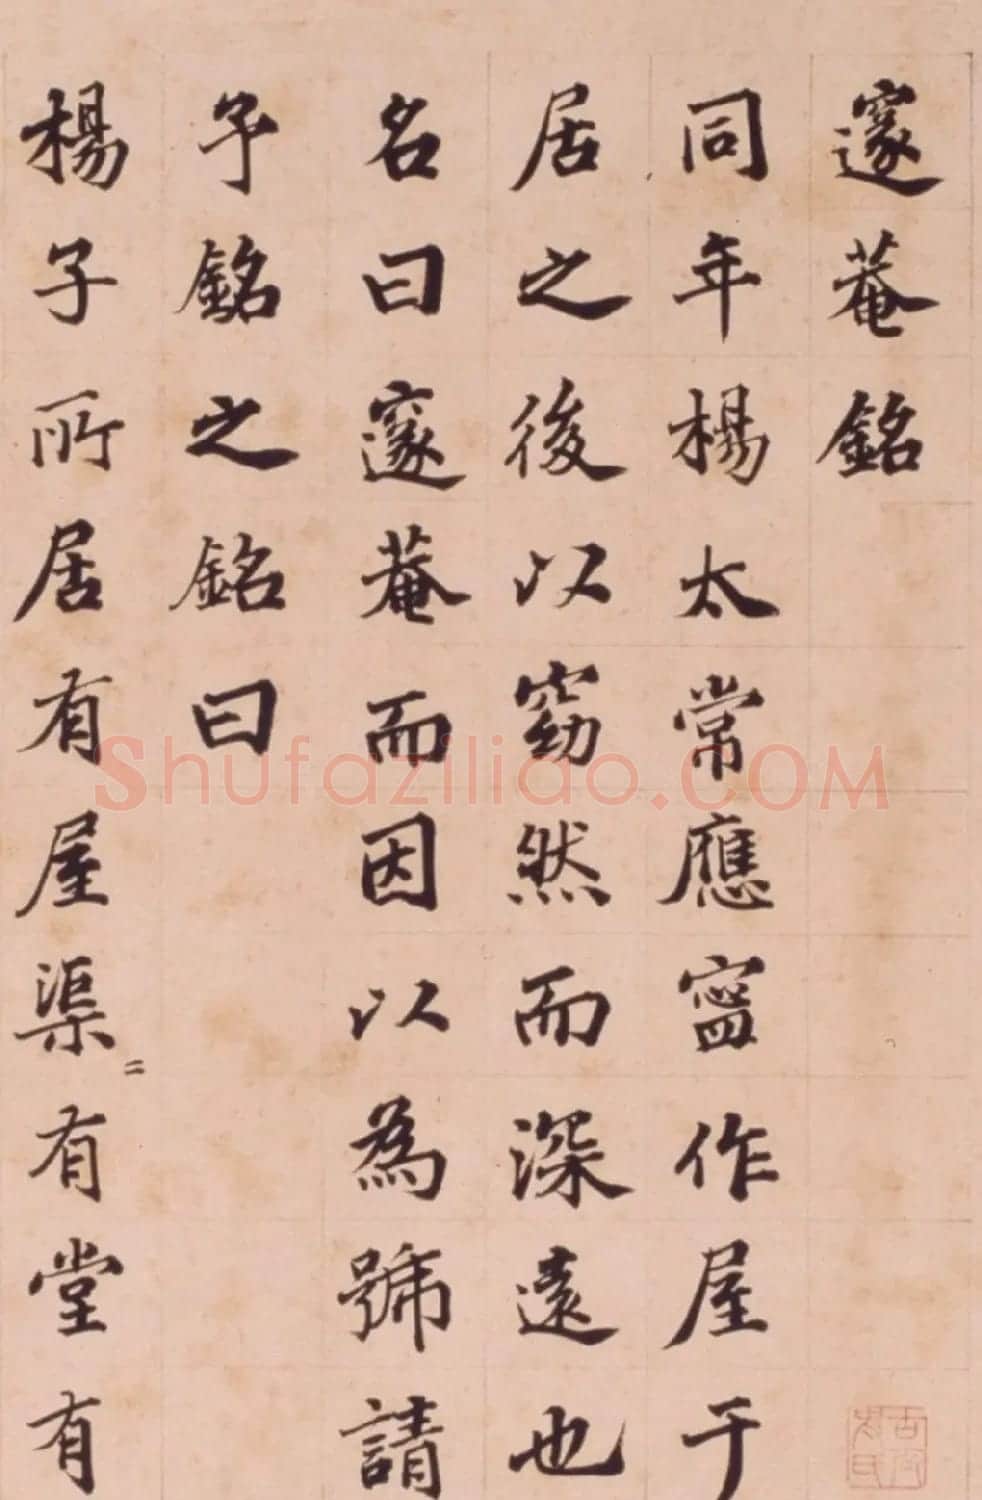 邃菴銘
同年楊太常應寧作屋于
居之後以窈然而深遠也
名曰邃菴而因以為號請
予銘之銘曰
楊子所居有屋渠〻有堂有
Shufaziliao.COM